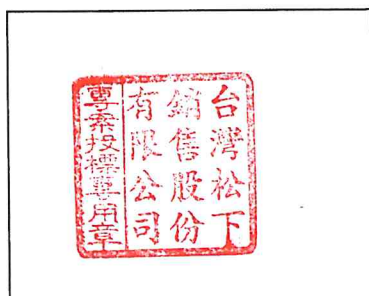 台灣松下
銷售股份
有限公司
專案投標專用章